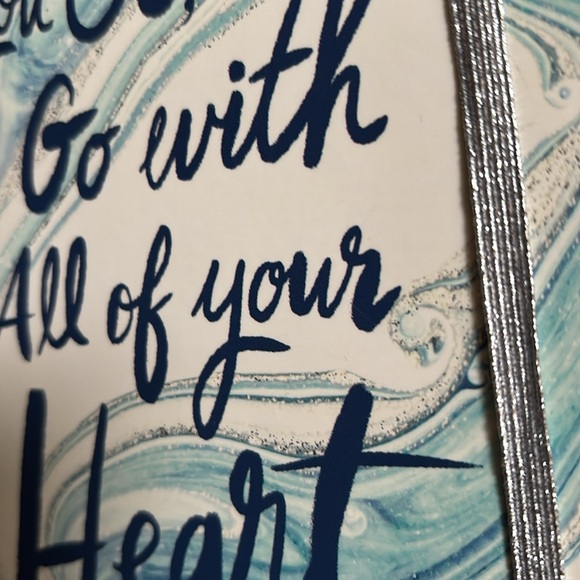 Go with
All of your
Heart